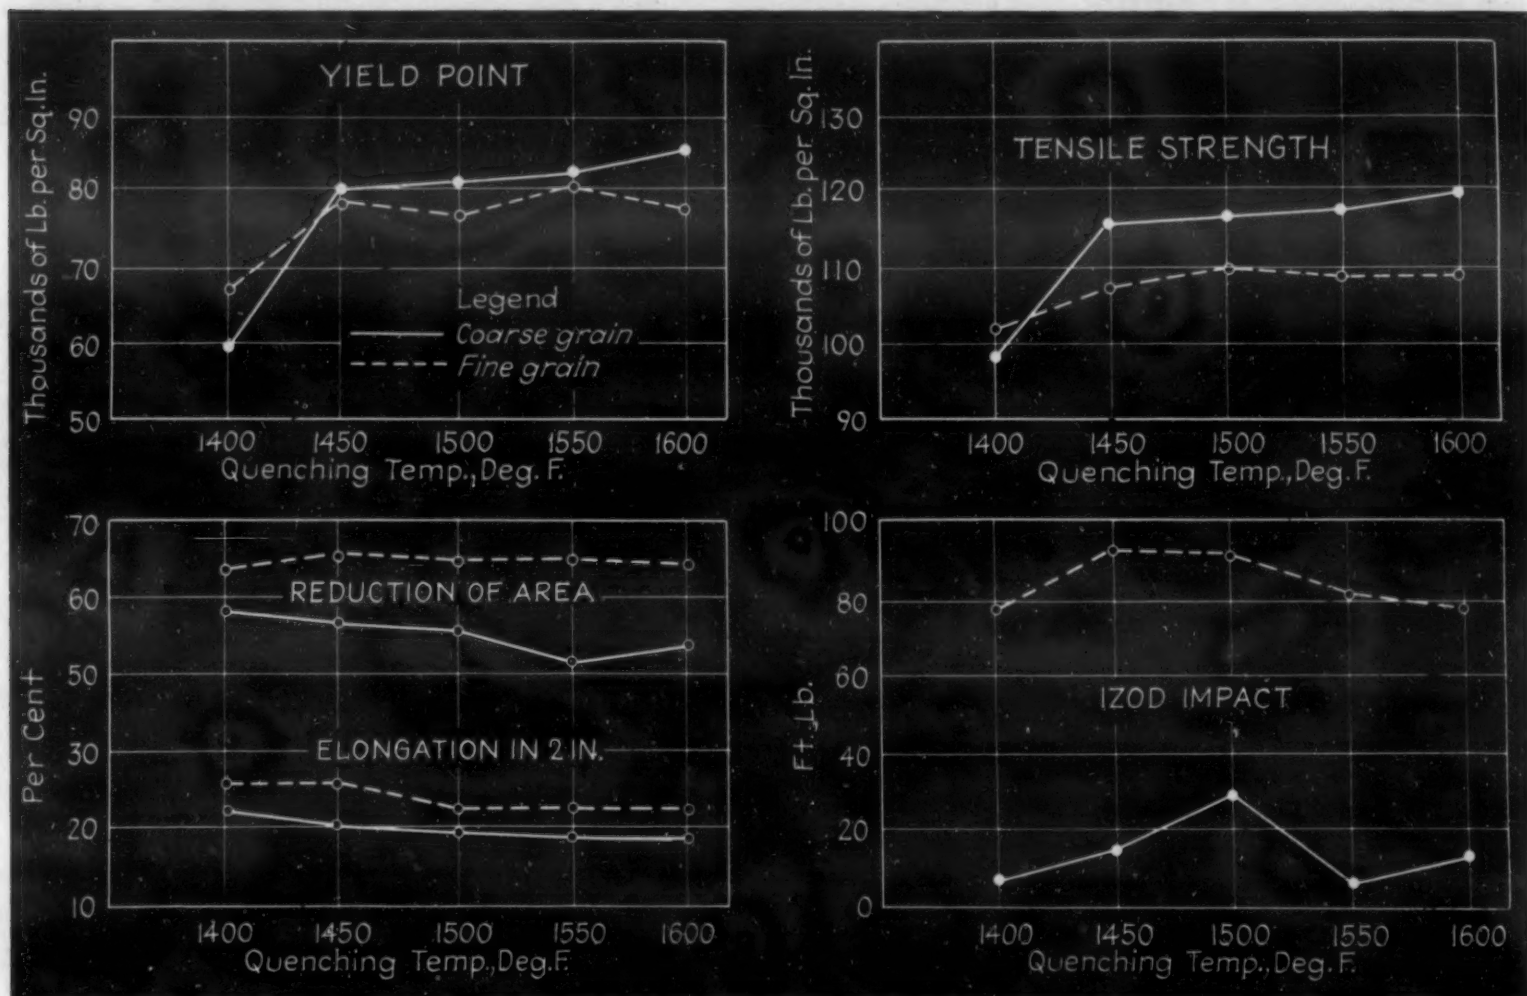 YIELD POINT
Thousands of Lb. per Sq. In.
90
80
70
60
50
Legend
Coarse grain
Fine grain
1400 1450 1500 1550 1600
Quenching Temp., Deg. F.
TENSILE STRENGTH
Thousands of Lb. per Sq. In.
130
120
110
100
90
1400 1450 1500 1550 1600
Quenching Temp., Deg. F.
70
60
50
30
20
10
Per Cent
REDUCTION OF AREA
ELONGATION IN 2 IN.
1400 1450 1500 1550 1600
Quenching Temp., Deg. F.
100
80
60
40
20
0
Ft. Lb.
IZOD IMPACT
1400 1450 1500 1550 1600
Quenching Temp., Deg. F.